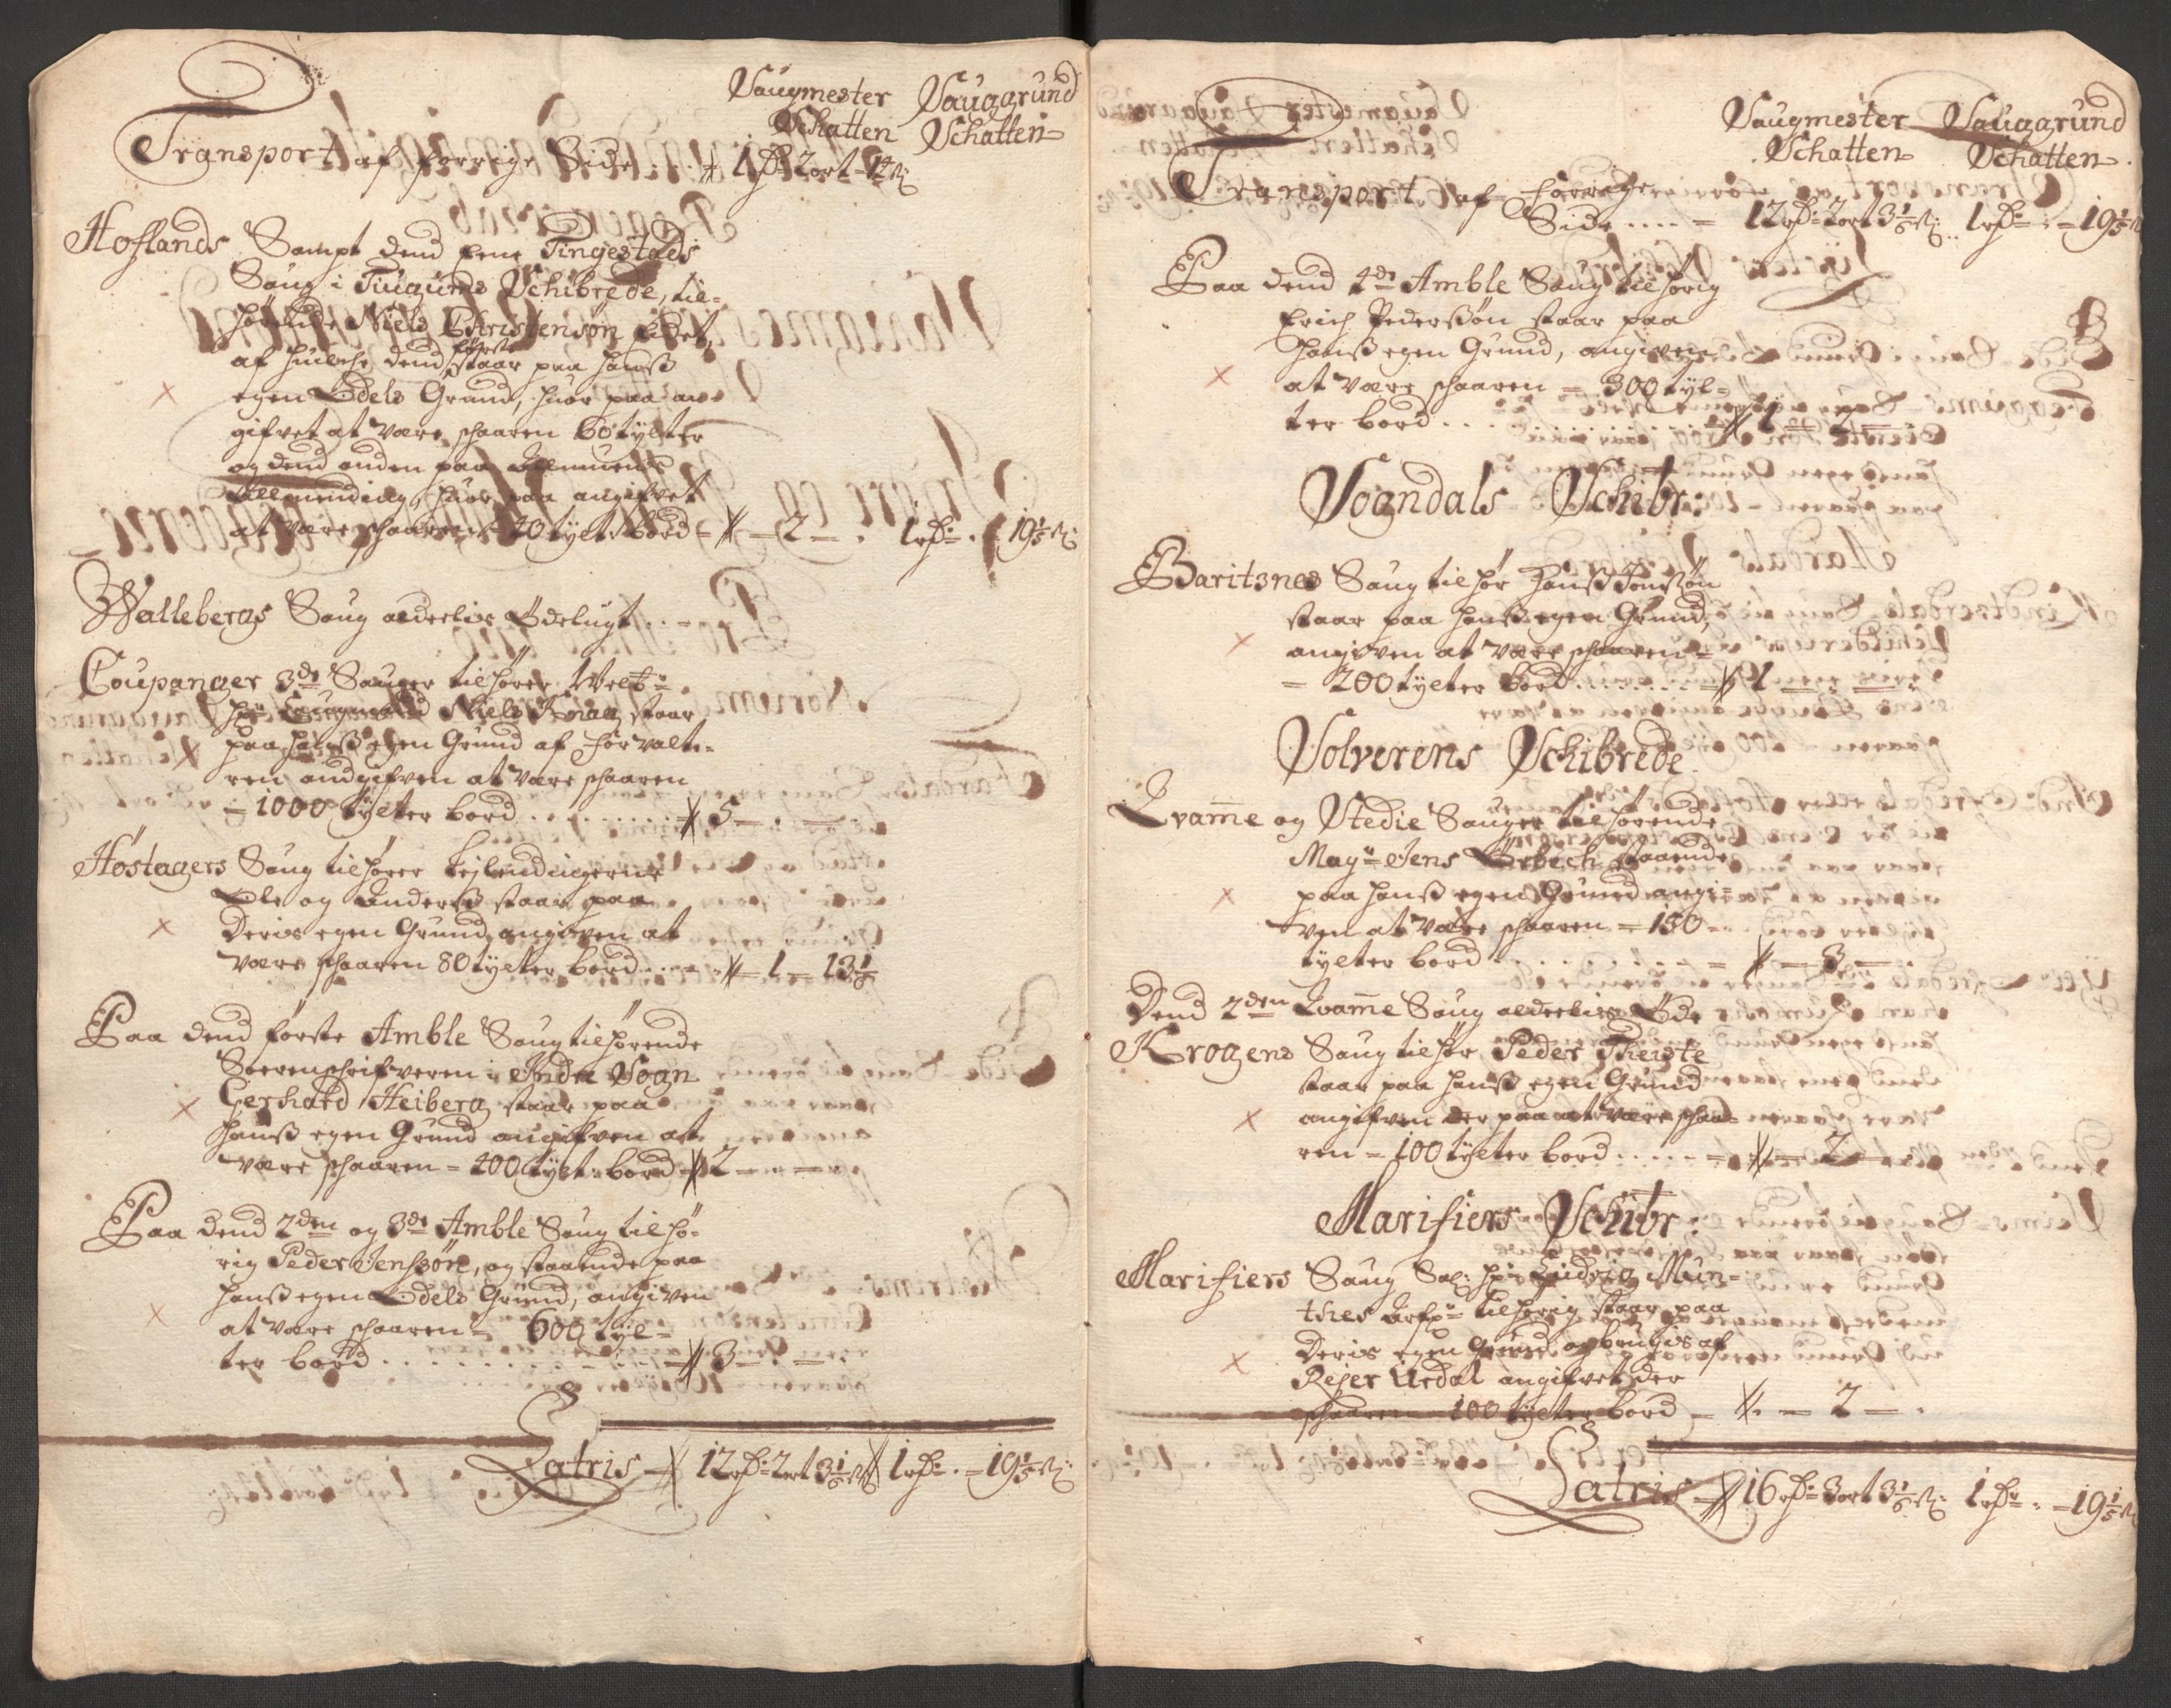 Saugmester Sauggrund
Schatten Schatten
Transport af forrige Side . . 1 rdr 2 ort 14 s
Hoflands Sampt dend Eene Tingestads
Saug i Tuigums Schibrede, til-
hørende Niels Christensøn
af huilche dend første staar paa hanß
egen Odels Grund, huor paa an-
gifvet at være schaaren 60 tylter
og dend anden paa Allmuens
Allmending, huor paa angifvet
at være schaaren 40 tylt: bord - 2 - . 1 rdr . 19 1/5 s
Wallebergs Saug alderlis Ødelugt . . -
Coupanger 3de Sauger tilhører Welb:
Hr: Laugmand Niels Knag staar
paa hanß egen Grund af forvalte-
ren andgifven at være schaaren
- 1000 tylter bord . . . . . . . . . 5 - . -
Høstagers Saug tilhører
Ole og Anders staar paa
Deris egen Grund angiven at
være schaaren 80 tylter bord . . . - 1 - 13 1/6
Paa dend første Amble Saug tilhørende
Sorenschrifveren i Indre Sogn
Gerhard Heiberg staar paa
hanß egen Grund angifven at
være schaaren - 400 tylt: bord - 2 - - -
Paa dend 2den og 3de Amble Saug tilhø-
rig Peder Jenssøn, og staaende paa
hanß egen Odels Grund, angiven
at være schaaren - 600 tyl-
ter bord . . . . . . . . . . 3 - . -
Latris - 12 rdr 2 ort 3 1/6 s 1 rdr . - 19 1/5 s
Saugmester Sauggrund
Schatten Schatten
Transport af forrige
Side . . . . - 12 rdr 2 ort 3 1/6 s 1 rdr . - 19 1/5 s
Paa dend 4de Amble Saug tilhørig
Erich Pederßøn staar paa
hanß egen Grund, angiven
at være schaaren - 300 tyl-
ter bord . . . . . . . . . 1 - 2 -
Sogndals Schibr:
Baritsnes Saug tilhør Hanß Jonßøn
staar paa hanß egen Grund,
angiven at være schaaren -
- 200 tylter bord . . . . . . . 1 - - -
Solverens Schibrede
Qvam̅e og Stedie Sauger tilhørende
Mag: Jens Ørbech staaende
paa hanß egen Grund angi-
ven at være schaaren - 150
tylter bord . . . . . . . . - - 3 - .
Dend 2den Qvam̅e Saug alderlis Øde
Krogens Saug tilhør Peder Theiste
staar paa hanß egen Grund
angifven der paa at være schaa-
ren - 100 tylter bord . . . . - - 2 -
Marifiers Schibr:
Marifiers Saug Sal: Hr: Ludvig Mun-
thes Arfv: tilhørig staar paa
Deris egen Grund og brugis af
Rejer Urdal angifvet der
schaaren 100 tylter bord - - 2 - .
Latris - 16 rdr 3 ort 3 1/6 s 1 rdr . - 19 1/5 s